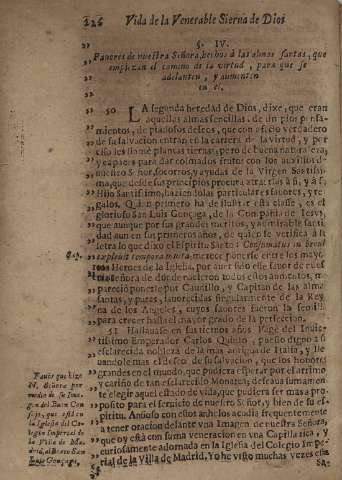 226 Vida de la Venerable Sierva de Dios
§. IV.
Fauores de nuestra Señora, hechos à las almas santas, que
empiezan el camino de la virtud, para que se
adelanten, y aumenten
en èl.
50 LA segunda heredad de Dios, dixe, que eran
aquellas almas sencillas, de limpios pensa-
mientos, de piadosos deseos, que con afecto verdadero
de su salvacion entran en la carrera de la virtud, y por
esso les llamè plantas tiernas, pero de buena naturaleza,
y capazes para dar colmados frutos con los auxilios de
nuestro Señor, socorros, y ayudas de la Virgen Santissi-
ma, que desde sus principios procura atraerlas à sì, y à su
Hijo Santissimo, haziendolas particulares fauores, y re-
galos. Quien primero ha de ilustrar esta classe, es el
glorioso San Luis Gonçaga, de la Compañia de Iesvs,
que aunque por sus grandes meritos, y admirable santi-
dad aun en sus primeros años, de quien se verifica à la
letra lo que dixo el Espiritu Santo: Consumatus in breui
expleuit tempora multa; merece ponerse entre los mayo-
res Heroes de la Iglesia, por auer sido este fauor de nues-
tra Señora de donde nacieron todos estos aumentos, me
pareciò ponerlo por Caudillo, y Capitan de las almas
santas, y puras, fauorecidas singularmente de la Rey-
na de los Angeles, cuyos fauores fueron la semilla
para crecer hasta el mayor grado de la perfeccion.
51 Hallauase en sus tiernos años Page del Inuic-
tissimo Emperador Carlos Quinto, puesto digno a su
esclarecida nobleza de la mas antigua de Italia, y lle-
uandole mas el deseo de su salvacion, que los honores
grandes en el mundo, que pudiera esperar por el arrimo
y cariño de tan esclarecido Monarca; deseaua sumamen-
te elegir aquel estado de vida, que pudiera ser mas a pro-
posito para el servicio de nuestro Señor, y bien de su es-
piritu. Ansioso con estos anhelos acudia frequentemente
a tener oracion delante vna Imagen de nuestra Señora,
que oy està con suma veneracion en vna Capilla rica, y
curiosamente adornada en la Iglesia del Colegio Impe-
rial de la Villa de Madrid. Yo he visto muchas vezes esta
Sa-
Fauor que hizo
N. Señora por
medio de su Ima-
gen del Buen Con-
sejo, que està en
la Iglesia del Co-
legio Imperial de
la Villa de Ma-
drid, al Beato San
Luis Gonçaga.